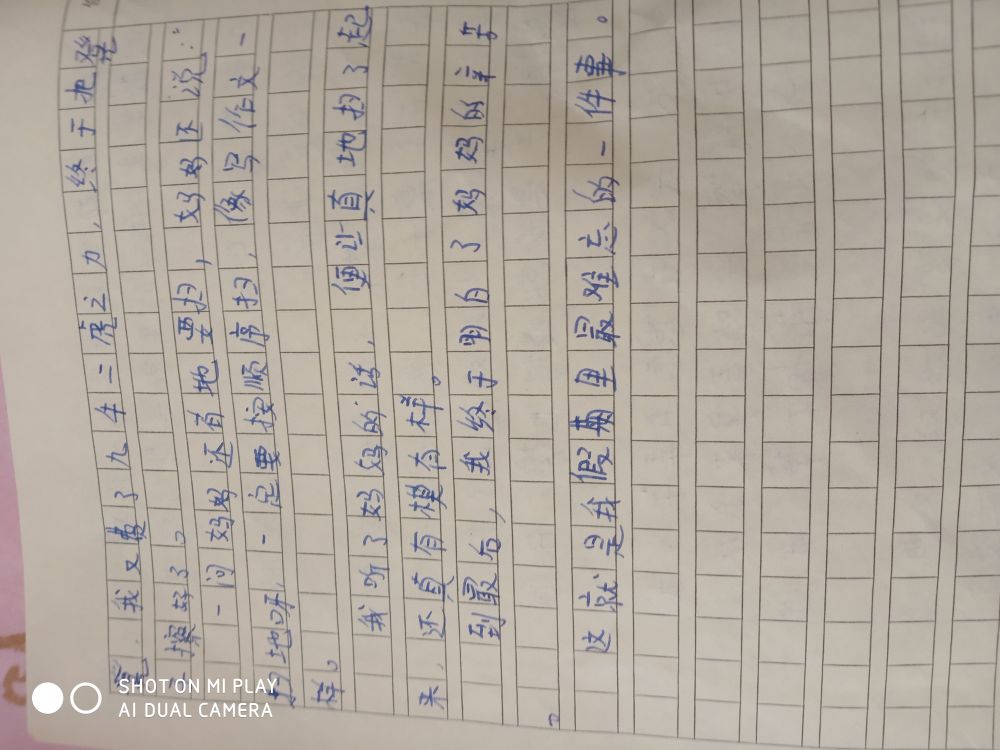 我又费了九牛二虎之力,终于把凳
子擦好了。
一问妈妈还有地要扫,妈妈还说:“
扫地呀,一定要按顺序扫,像写作文一
样。
我听了妈妈的话,便认真地扫了起
来,还真有模有样。
到最后,我终于明白了妈妈的
。
这就是我假期里最难忘的一件事。
SHOT ON MI PLAY
AI DUAL CAMERA